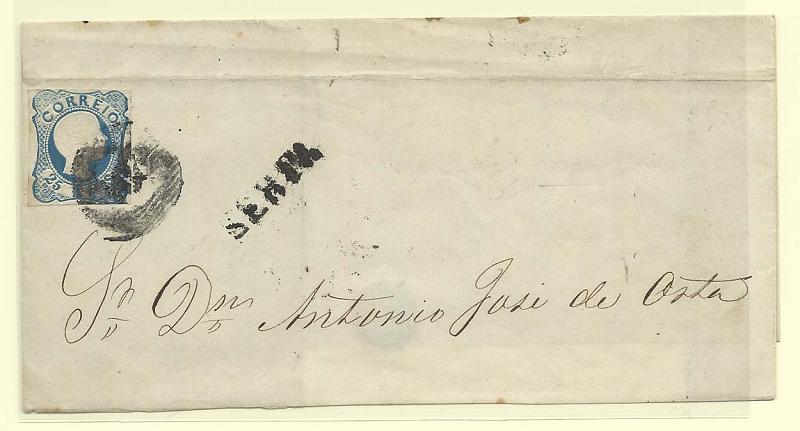 CORREIO
25
SERPA
Sr. Dm. Antonio José de Orta